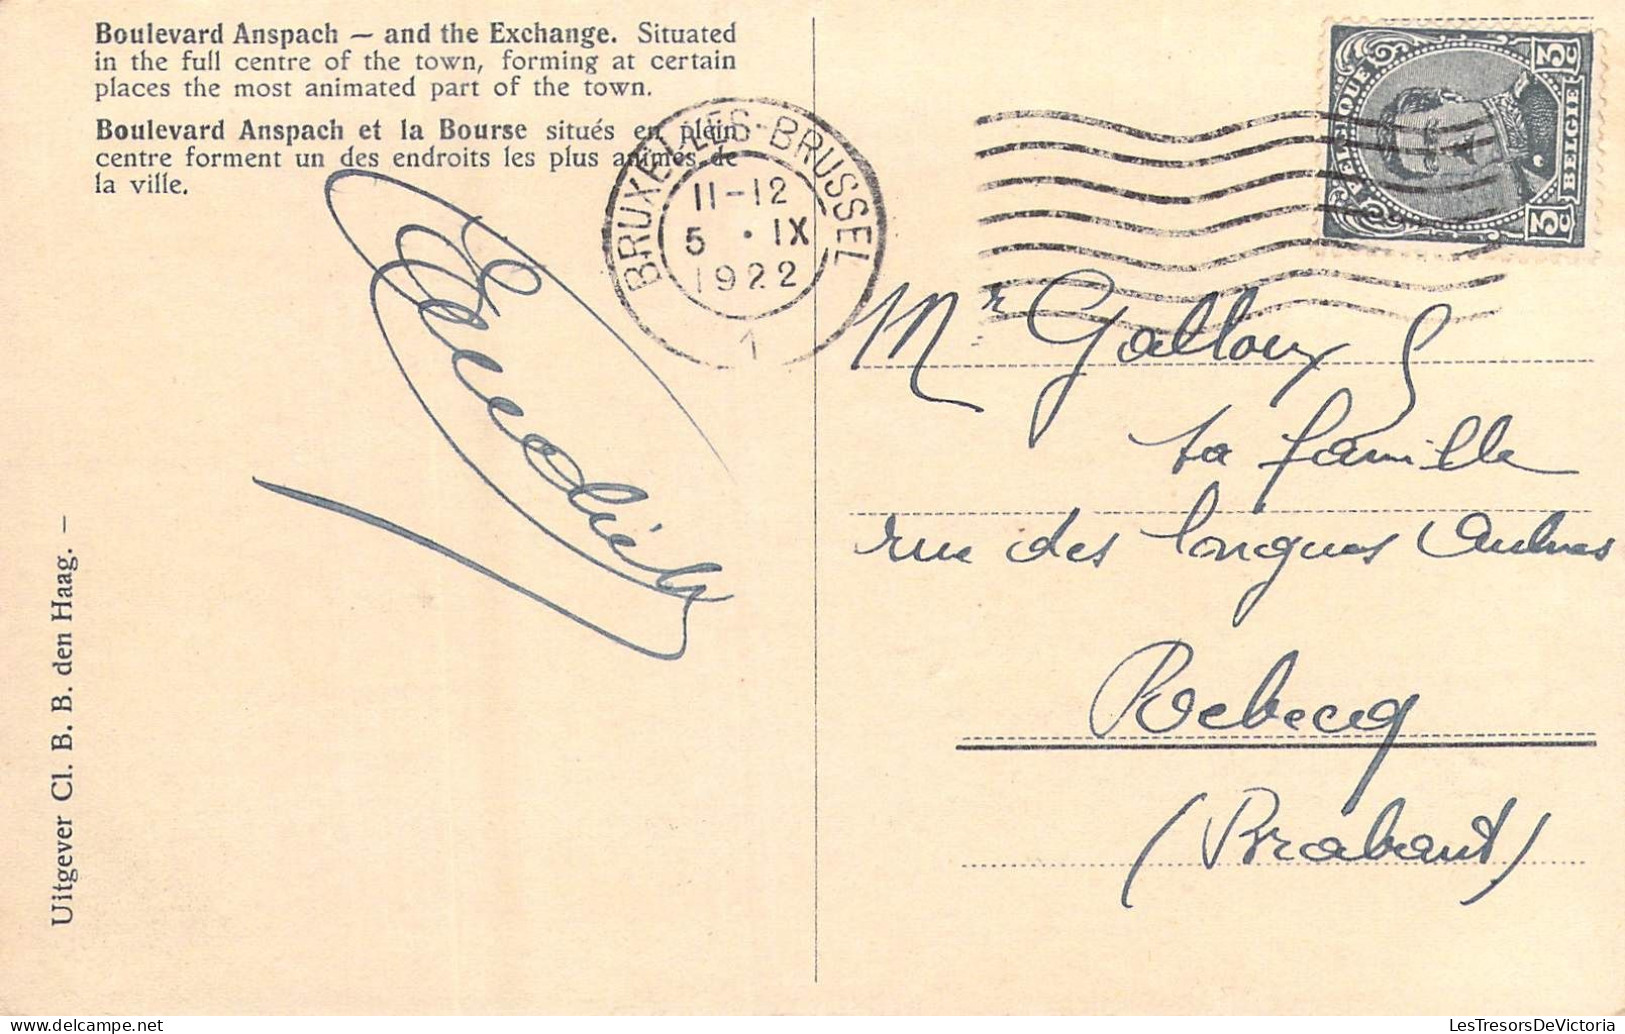 Boulevard Anspach — and the Exchange. Situated
in the full centre of the town, forming at certain
places the most animated part of the town.
Boulevard Anspach et la Bourse situés en plein
centre forment un des endroits les plus animés de
la ville.
BRUXELLES-BRUSSEL
11-12
5 • IX
1922
1
BELGIQUE
3c
BELGIË
3c
Mr Galloux &
sa famille
rue des longues
Rebecq
(Brabant)
Uitgever Cl. B. B. den Haag. —
LesTresorsDeVictoria
delcampe.net